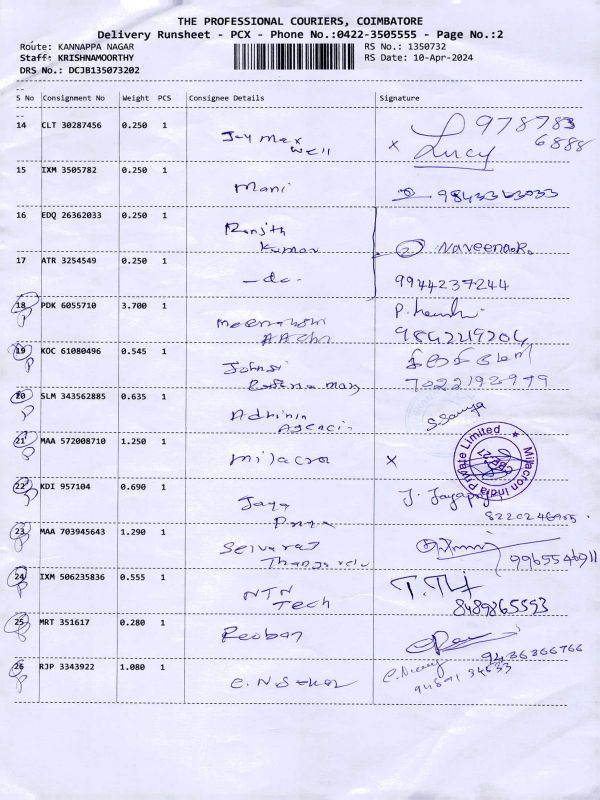 THE PROFESSIONAL COURIERS, COIMBATORE
Delivery Runsheet - PCX - Phone No.:0422-3505555 - Page No.:2
Route: KANNAPPA NAGAR RS No.: 1350732
Staff: KRISHNAMOORTHY RS Date: 10-Apr-2024
DRS No.: DCJB135073202
S No Consignment No Weight PCS Consignee Details Signature
14 CLT 30287456 0.250 1 Jay Max Well x Lucy 978783 6888
15 IXM 3505782 0.250 1 Mani
16 EDQ 26362033 0.250 1 Ranjith Kumar Naveena.R.
17 ATR 3254549 0.250 1 -do- 9944237244
18 P PDK 6055710 3.700 1 9842219204
19 P KOC 61080496 0.545 1
20 P SLM 343562885 0.635 1 S. Sowya
21 P MAA 572008710 1.250 1 Milacron x Milacron India Private Limited ★ CBE-21
22 P KDI 957104 0.690 1 Jaya Priya J. Jayapriya
23 P MAA 703945643 1.290 1 Selvaraj Thangavelu 9965546911
24 P IXM 506235836 0.555 1 NTN Tech 8489865593
25 P MRT 351617 0.280 1 Reoban 9436366766
26 P RJP 3343922 1.080 1 C.N.Sekar